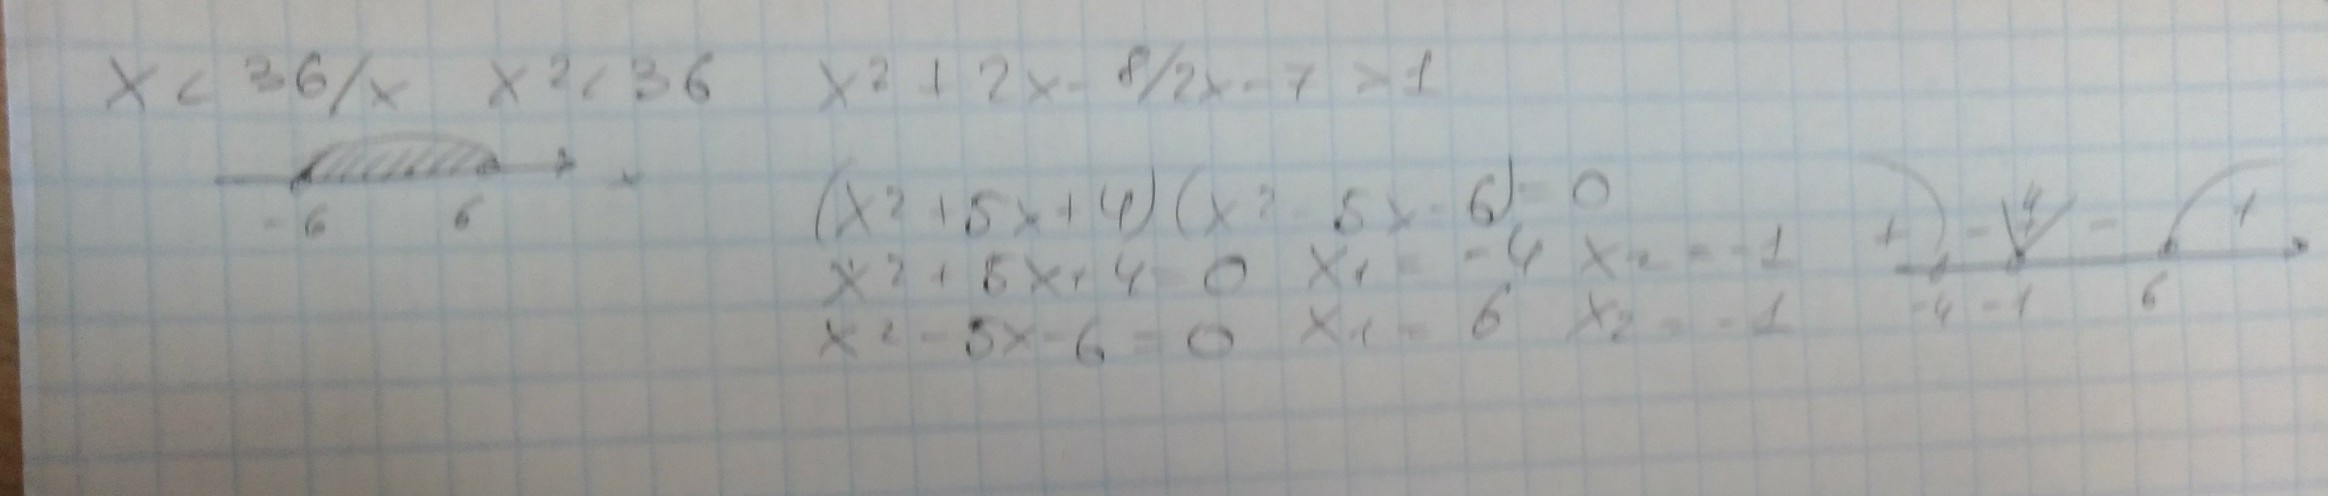 x < 36/x x² < 36 x² + 2x - 8/2x - 7 > 1
-6 6
(x² + 5x + 4)(x² - 5x - 6) = 0
x² + 5x + 4 = 0 x₁ = -4 x₂ = -1
x² - 5x - 6 = 0 x₁ = 6 x₂ = -1
+ - - +
-4 -1 6